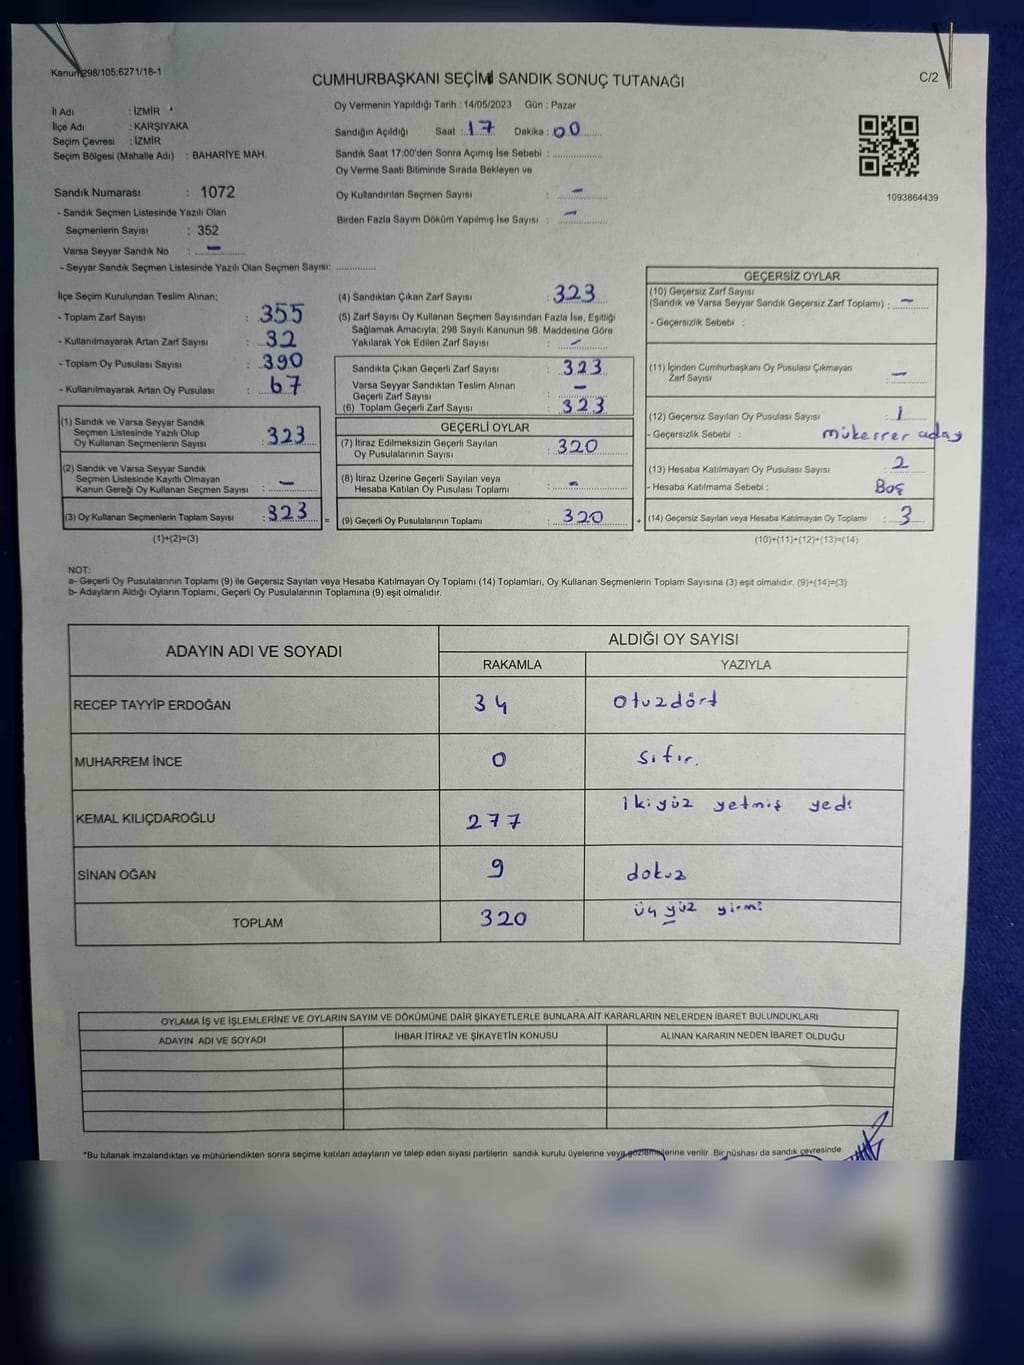 Kanun 298/105;6271/18-1
CUMHURBAŞKANI SEÇİMİ SANDIK SONUÇ TUTANAĞI
C/2
İl Adı : İZMİR
İlçe Adı : KARŞIYAKA
Seçim Çevresi : İZMİR
Seçim Bölgesi (Mahalle Adı) : BAHARİYE MAH.
Oy Vermenin Yapıldığı Tarih : 14/05/2023 Gün : Pazar
Sandığın Açıldığı Saat : 17 Dakika : 00
Sandık Saat 17:00'den Sonra Açımış İse Sebebi :
Oy Verme Saati Bitiminde Sırada Bekleyen ve
Oy Kullandırılan Seçmen Sayısı : -
Birden Fazla Sayım Döküm Yapılmış İse Sayısı : -
1093864439
Sandık Numarası : 1072
- Sandık Seçmen Listesinde Yazılı Olan
Seçmenlerin Sayısı : 352
Varsa Seyyar Sandık No : -
- Seyyar Sandık Seçmen Listesinde Yazılı Olan Seçmen Sayısı:
İlçe Seçim Kurulundan Teslim Alınan;
- Toplam Zarf Sayısı : 355
- Kullanılmayarak Artan Zarf Sayısı : 32
- Toplam Oy Pusulası Sayısı : 390
- Kullanılmayarak Artan Oy Pusulası : 67
(1) Sandık ve Varsa Seyyar Sandık
Seçmen Listesinde Yazılı Olup
Oy Kullanan Seçmenlerin Sayısı : 323
(2) Sandık ve Varsa Seyyar Sandık
Seçmen Listesinde Kayıtlı Olmayan
Kanun Gereği Oy Kullanan Seçmen Sayısı : -
(3) Oy Kullanan Seçmenlerin Toplam Sayısı : 323 =
(1)+(2)=(3)
(4) Sandıktan Çıkan Zarf Sayısı : 323
(5) Zarf Sayısı Oy Kullanan Seçmen Sayısından Fazla İse, Eşitliği
Sağlamak Amacıyla; 298 Sayılı Kanunun 98. Maddesine Göre
Yakılarak Yok Edilen Zarf Sayısı : -
Sandıkta Çıkan Geçerli Zarf Sayısı : 323
Varsa Seyyar Sandıktan Teslim Alınan
Geçerli Zarf Sayısı : -
(6) Toplam Geçerli Zarf Sayısı : 323
GEÇERLİ OYLAR
(7) İtiraz Edilmeksizin Geçerli Sayılan
Oy Pusulalarının Sayısı : 320
(8) İtiraz Üzerine Geçerli Sayılan veya
Hesaba Katılan Oy Pusulası Toplamı : -
(9) Geçerli Oy Pusulalarının Toplamı : 320 +
GEÇERSİZ OYLAR
(10) Geçersiz Zarf Sayısı
(Sandık ve Varsa Seyyar Sandık Geçersiz Zarf Toplamı) : -
- Geçersizlik Sebebi :
(11) İçinden Cumhurbaşkanı Oy Pusulası Çıkmayan
Zarf Sayısı : -
(12) Geçersiz Sayılan Oy Pusulası Sayısı : 1
- Geçersizlik Sebebi : mükerrer aday
(13) Hesaba Katılmayan Oy Pusulası Sayısı : 2
- Hesaba Katılmama Sebebi : Boş
(14) Geçersiz Sayılan veya Hesaba Katılmayan Oy Toplamı : 3
(10)+(11)+(12)+(13)=(14)
NOT:
a- Geçerli Oy Pusulalarının Toplamı (9) ile Geçersiz Sayılan veya Hesaba Katılmayan Oy Toplamı (14) Toplamları, Oy Kullanan Seçmenlerin Toplam Sayısına (3) eşit olmalıdır. (9)+(14)=(3)
b- Adayların Aldığı Oyların Toplamı, Geçerli Oy Pusulalarının Toplamına (9) eşit olmalıdır.
ADAYIN ADI VE SOYADI ALDIĞI OY SAYISI
RAKAMLA YAZIYLA
RECEP TAYYİP ERDOĞAN 34 Otuzdört
MUHARREM İNCE 0 sıfır.
KEMAL KILIÇDAROĞLU 277 ikiyüz yetmiş yedi
SİNAN OĞAN 9 dokuz
TOPLAM 320 üçyüz yirmi
OYLAMA İŞ VE İŞLEMLERİNE VE OYLARIN SAYIM VE DÖKÜMÜNE DAİR ŞİKAYETLERLE BUNLARA AİT KARARLARIN NELERDEN İBARET BULUNDUKLARI
ADAYIN ADI VE SOYADI İHBAR İTİRAZ VE ŞİKAYETİN KONUSU ALINAN KARARIN NEDEN İBARET OLDUĞU
*Bu tutanak imzalandıktan ve mühürlendikten sonra seçime katılan adayların ve talep eden siyasi partilerin sandık kurulu üyelerine veya gözlemcilerine verilir .Bir nüshası da sandık çevresinde